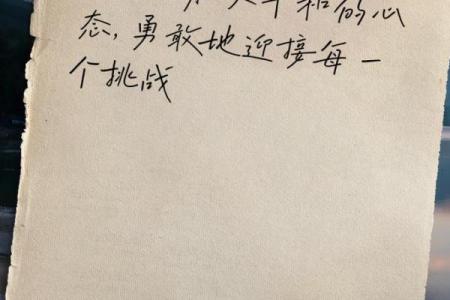 和的心
态,勇敢地迎接每一
个挑战